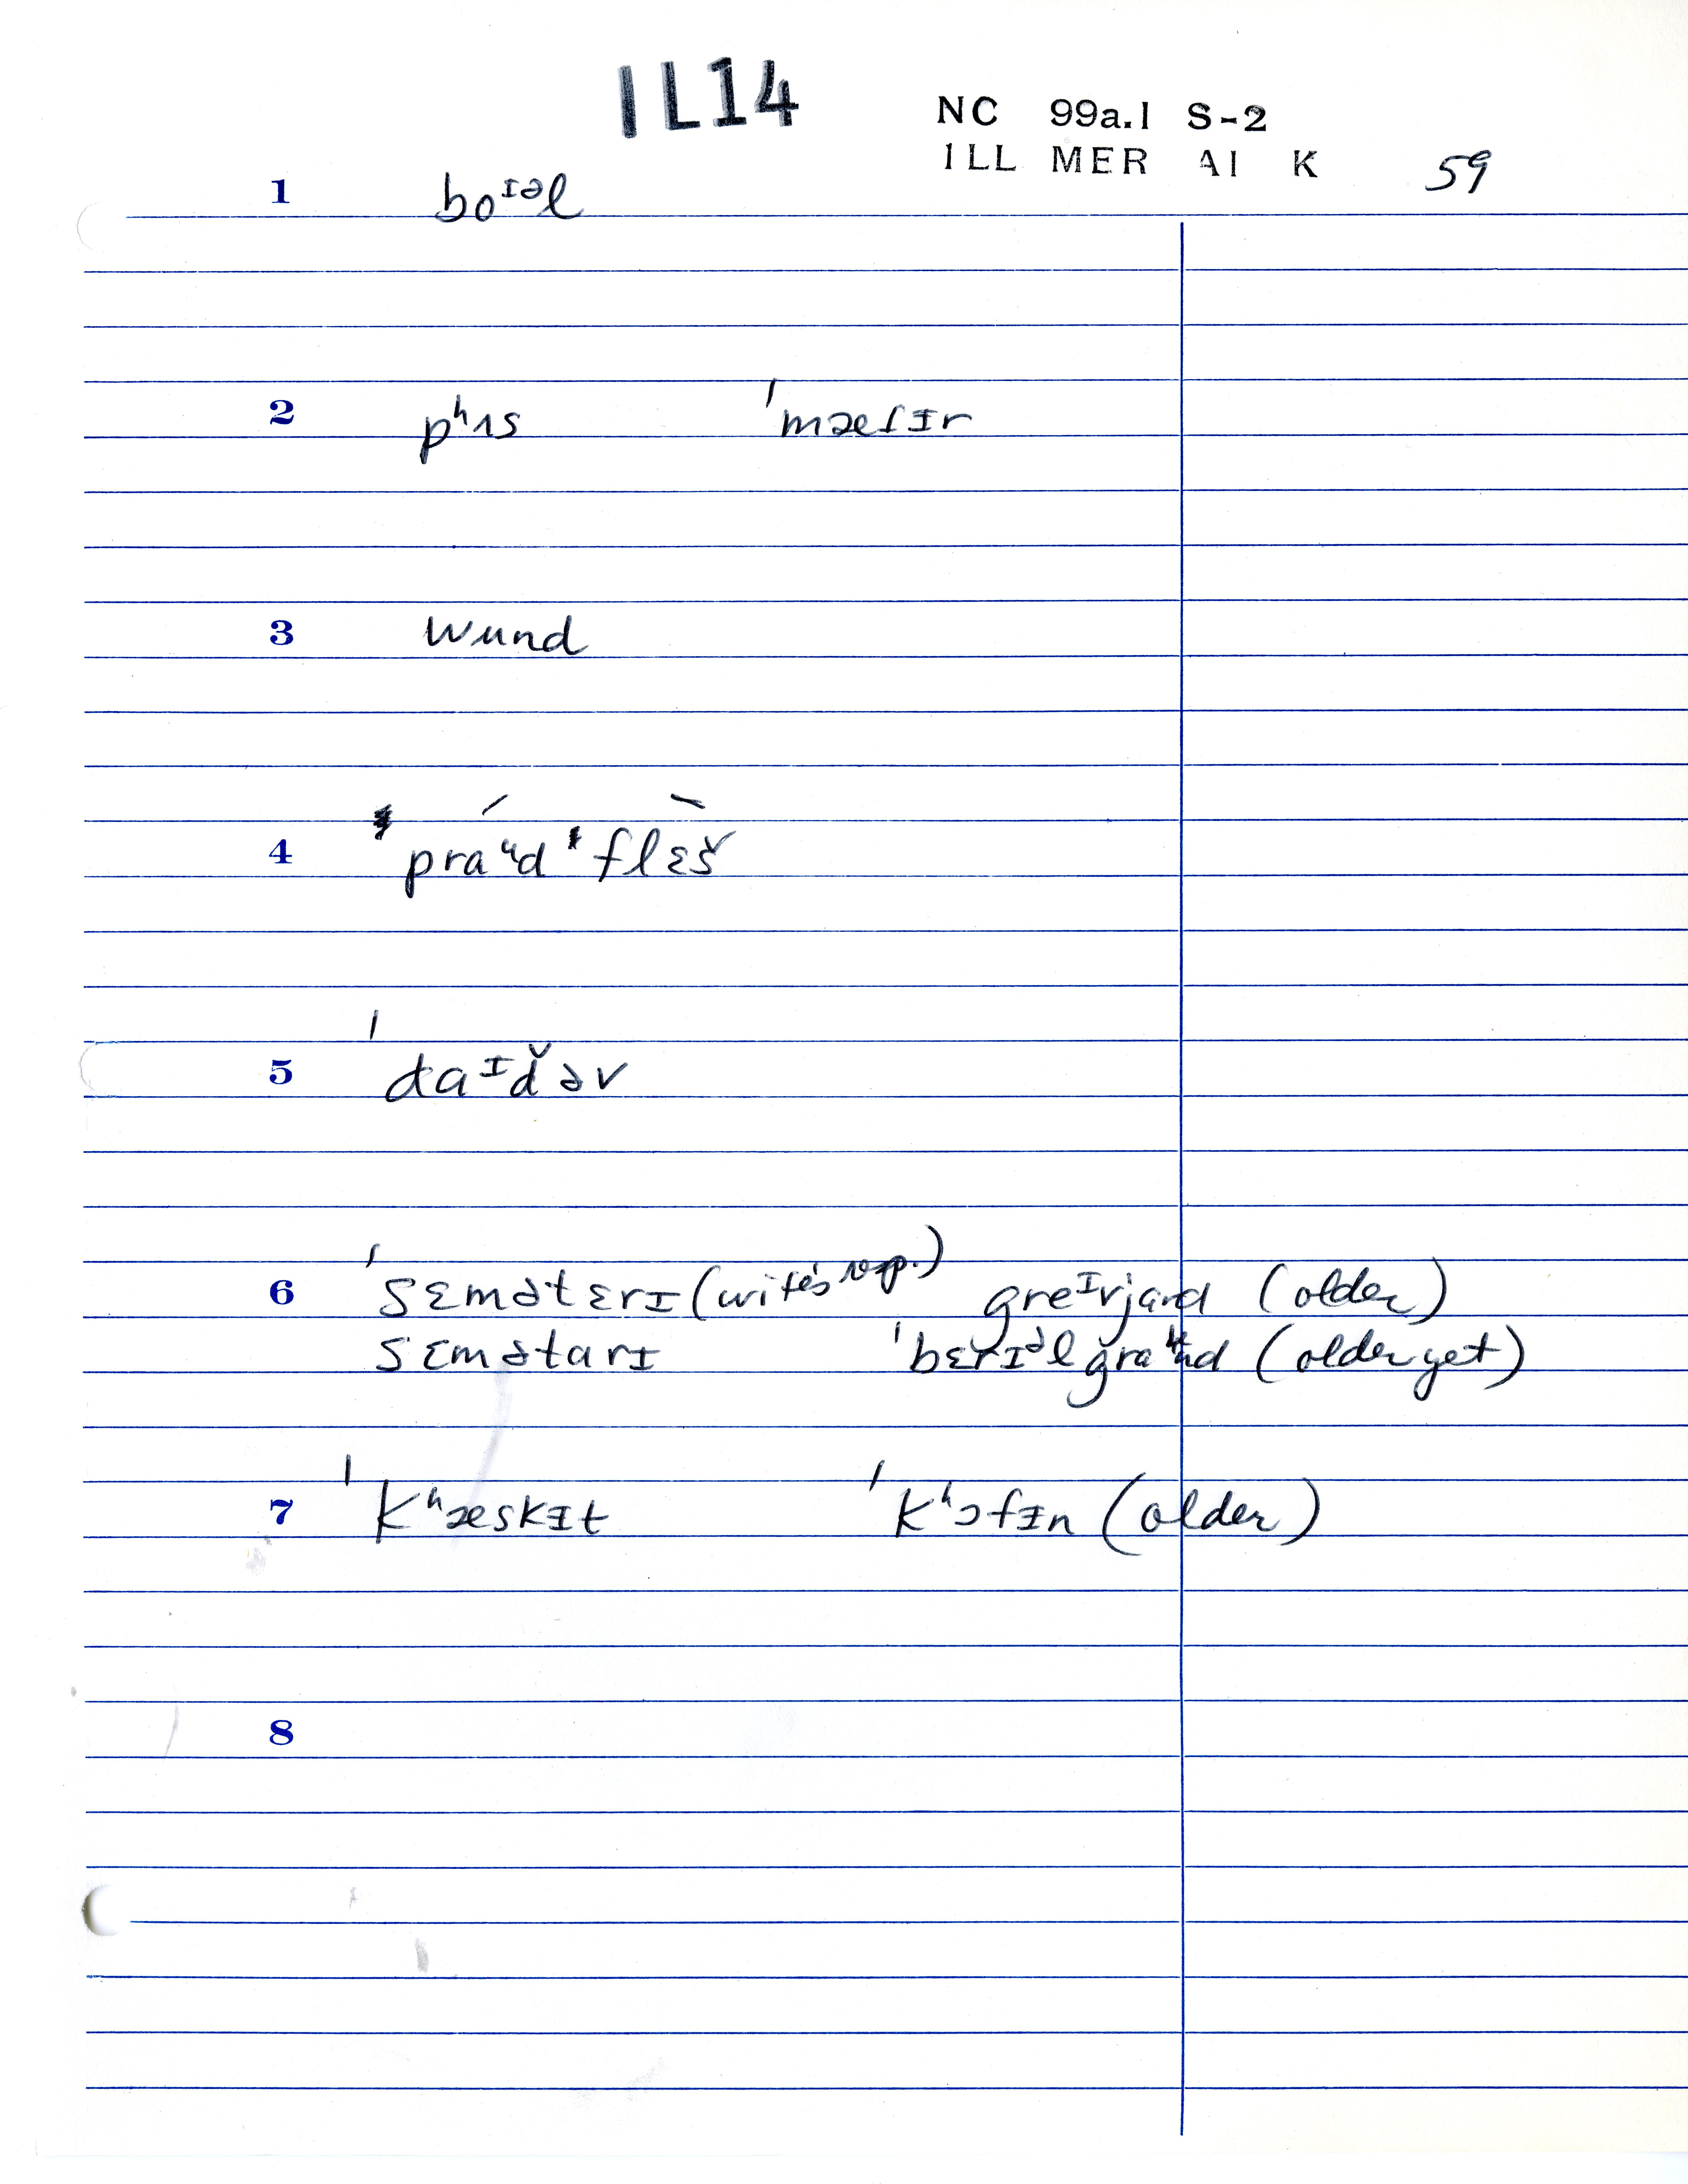 IL14
NC 99a.1 S-2
ILL MER AI K 59
1 boᶦᵊl
2 pʰʌs ˈmæɾɪr
3 wund
4 práᵘd flɛ̀š
5 ˈdaᶦd̆əv
6 ˈsɛmətɛrɪ (wife's resp.) greᶦvjɑrd (older)
sɛmətarɪ ˈbɛrɪᵊlgraᵘnd (older yet)
7 ˈkʰæskɪt ˈkʰɔfɪn (older)
8